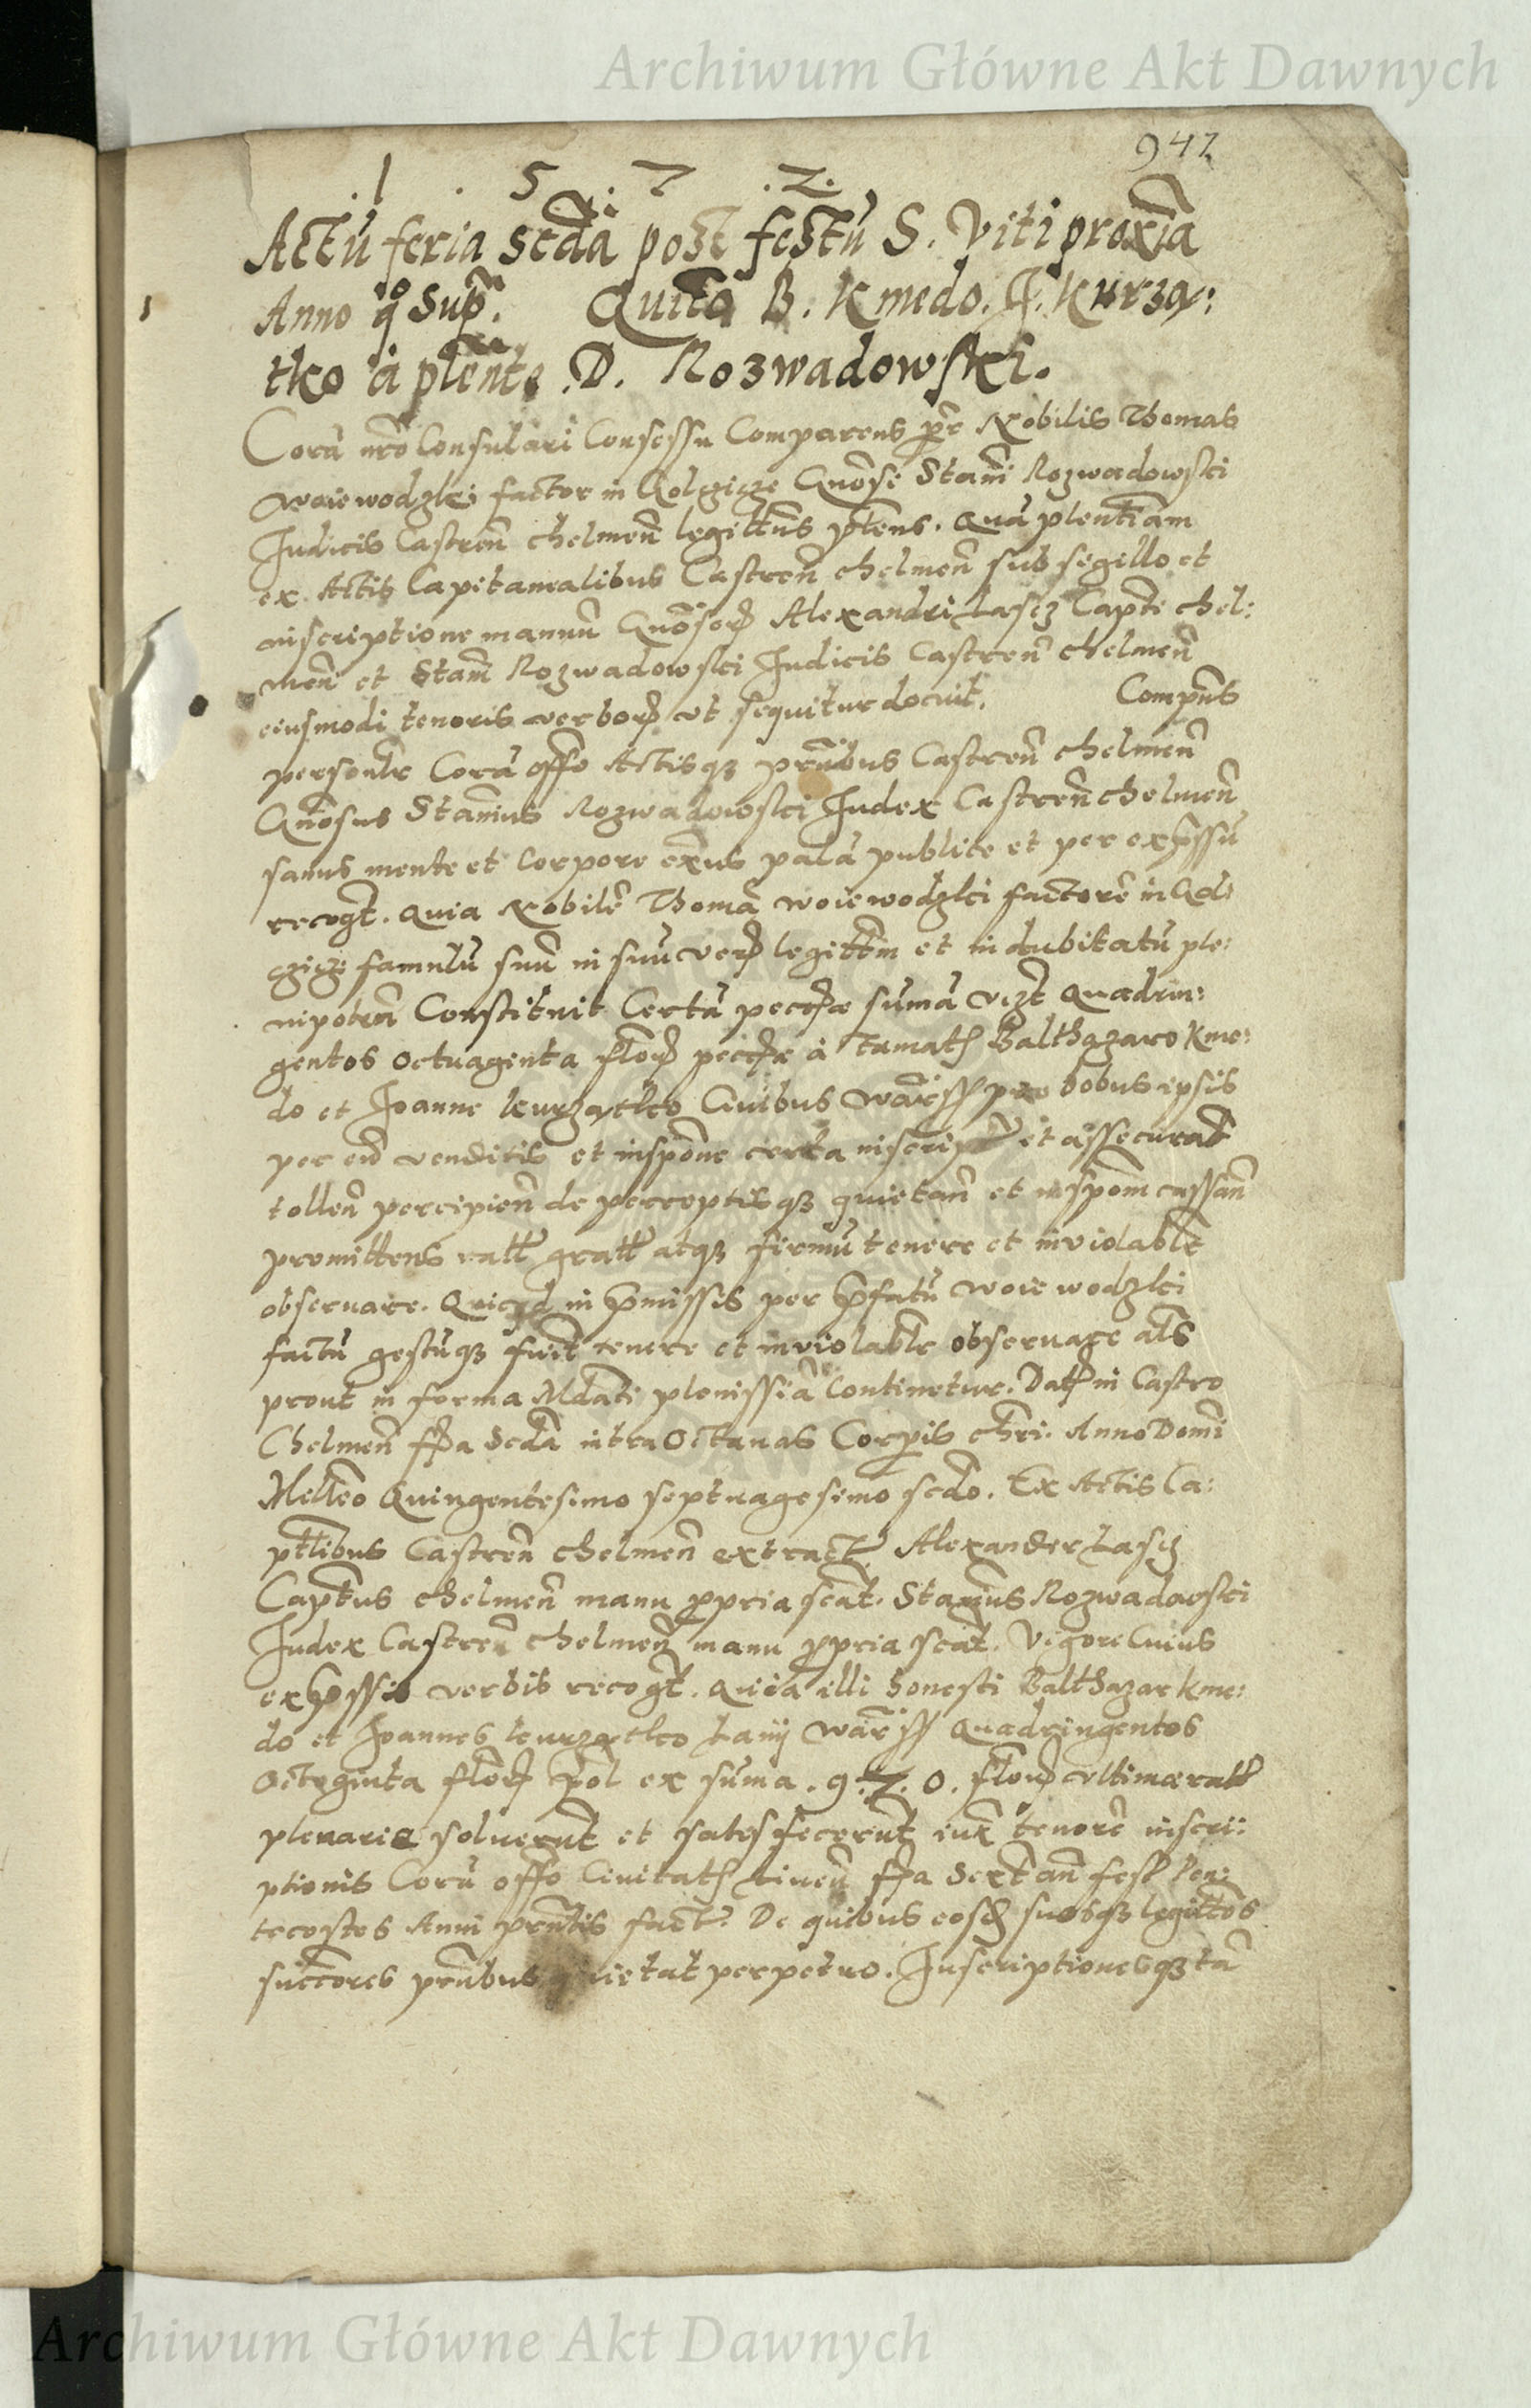 Archiwum Główne Akt Dawnych
947
.1.5.7.2.
Actū feria scďa post festū S. Viti proxīa
Anno qo Sup. Quitā B. Kmedo. J. Kurzą:
tko a plēnte D. Rozwadowski.
Corā nrō Consulari Consessu Comparens pr Nobilis Thomas
Woiewodzki factor in Gnōsi Stani Rozwadowski
Judicis Castren̄ Chelmen̄ legittms ptens. Quā plentiam
ex Actis Capitanealibus Castren̄ chelmen̄ sub sigillo et
inscriptione manuū Gnōsor Alexandri Lascz Capti chel:
men̄ et Stani Rozwadowski Judicis Castren̄ chelmen̄
eiusmodi tenoris verbor ut sequitur docuit. Compns
personlr Corā offo Actisq3 prn̄tibus Castren̄ chelmen̄
Gnōsus Stanius Rozwadowski Judex Castren̄ chelmen̄
sanus mente et corpore exns palā publice et per expssū
recogt. Quia Nobilē Thomā Woiewodzki factorē in
famulū suū in suū verū legittm et indubitatū ple:
nipotem Constituit Certā pecciæ sumā vizt Quadrin:
gentos octuaginta flor pecciæ à famatis Balthazaro Kme:
do et Joanne Kurzątko Civibus pro bobus ipsis
per eū venditis et inspone certa inscript et assecurat
tollen̄ percipien̄ de perceptisq3 quietan̄ et inspom cassan̄
promittens ratt gratt atq3 firmū tenere et inviolabile
observare. Quicqd in pmissis per pfatū Woiewodzki
factū gestūq3 fuit tenere et inviolable observare als
prout in forma Mdati plenissiā Continetur. Dat in Castro
Chelmen̄ fra Scda intra Octavas Corpis chri. Anno Domi
Millēo Quingentesimo septuagesimo scdo. Ex Actis Ca:
ptlibus Castren̄ chelmen̄ extract Alexander Lascz
Captus chelmen̄ manu ppria scat. Stanius Rozwadowski
Judex Castren̄ chelmen̄ manu ppria scat. Vigore Cuius
expssis verbis recogt. Quia illi honesti Balthazar Kme:
do et Joannes Kurzątko Lanij Quadringentos
Octoginta flor pol ex sumā. 9.7.0. flor ultimæ ratt
plenarie solverunt et satisfecerunt iux tenorē inscri:
ptionis Corā offo Civitatis fra Sext an̄ fest Pen:
tecostes Anni prn̄tis fact. De quibus eosd suosq3 legittos
succores prn̄tibus quietat perpetuo. Inscriptionesq3 tā
Archiwum Główne Akt Dawnych